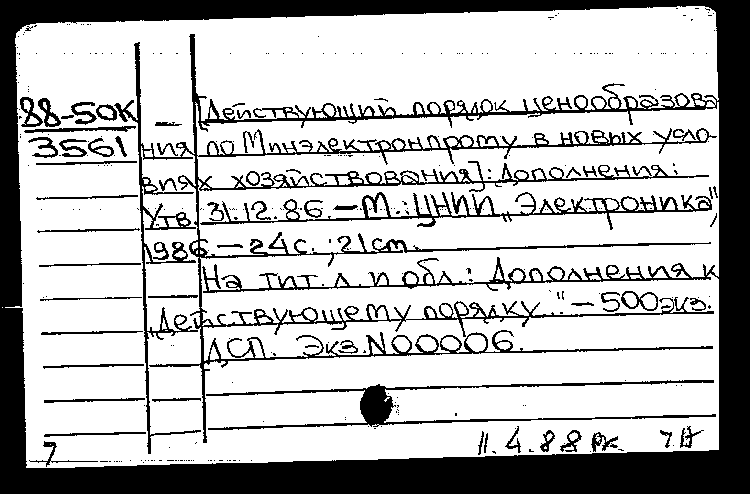 88-50К
3561
— [Действующий порядок ценообразова
ния по Минэлектронпрому в новых усло-
виях хозяйствования]: Дополнения:
Утв. 31.12.86. — М.: ЦНИИ „Электроника",
1986. — 24 с. ; 21 см.
На тит. л. и обл.: Дополнения к
„Действующему порядку.." — 500 экз.
ДСП. Экз. N00006.
7
11.4.88